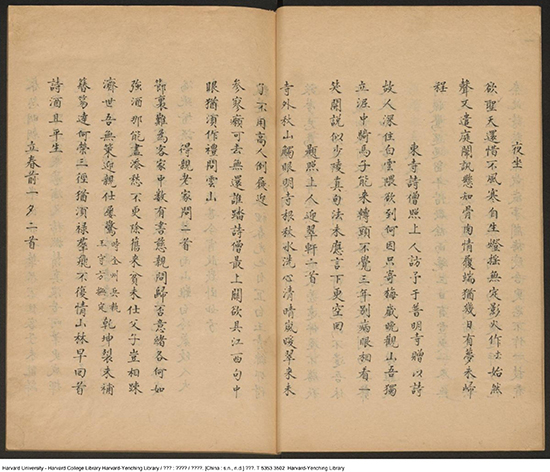 夜坐
欲聖天運惜不風寒自生燈搖無定影火作始然
聲又遣庭闈訊愁如骨肉情履端猶幾日有夢未歸
程
東寺詩僧照上人訪予于普明寺贈以詩
故人深住白雲隈欲到何因只寄梅歲晚觀山吾獨
立泥中騎馬子能來轉頭不覺三年別病眼相看一
笑開說似少陵真句法未應言下更空回
題照上人迎翠軒二首
寺外秋山觸眼明寺根秋水洗心清晴嵐暖翠來未
了不用高人倒屐迎
參寥癩可去無還誰踏詩僧最上關欲具江西句中
眼猶須作禮問雲山
得親老家問二首
節裏難爲客家中數有書慈親問歸否意緒各何如
強酒那能盡添愁不更除舊來貧未仕父子豈相疎
濟世吾無策迎親仕屢驚時金州乾坤製未補
達何榮三徑猶須祿羣飛不復情山林早回首
詩酒且平生
立春前一夕二首
Harvard University - Harvard College Library Harvard-Yenching Library / ??? : ???? / ????. [China : s.n., n.d.] ???. T 5353 3502 Harvard-Yenching Library